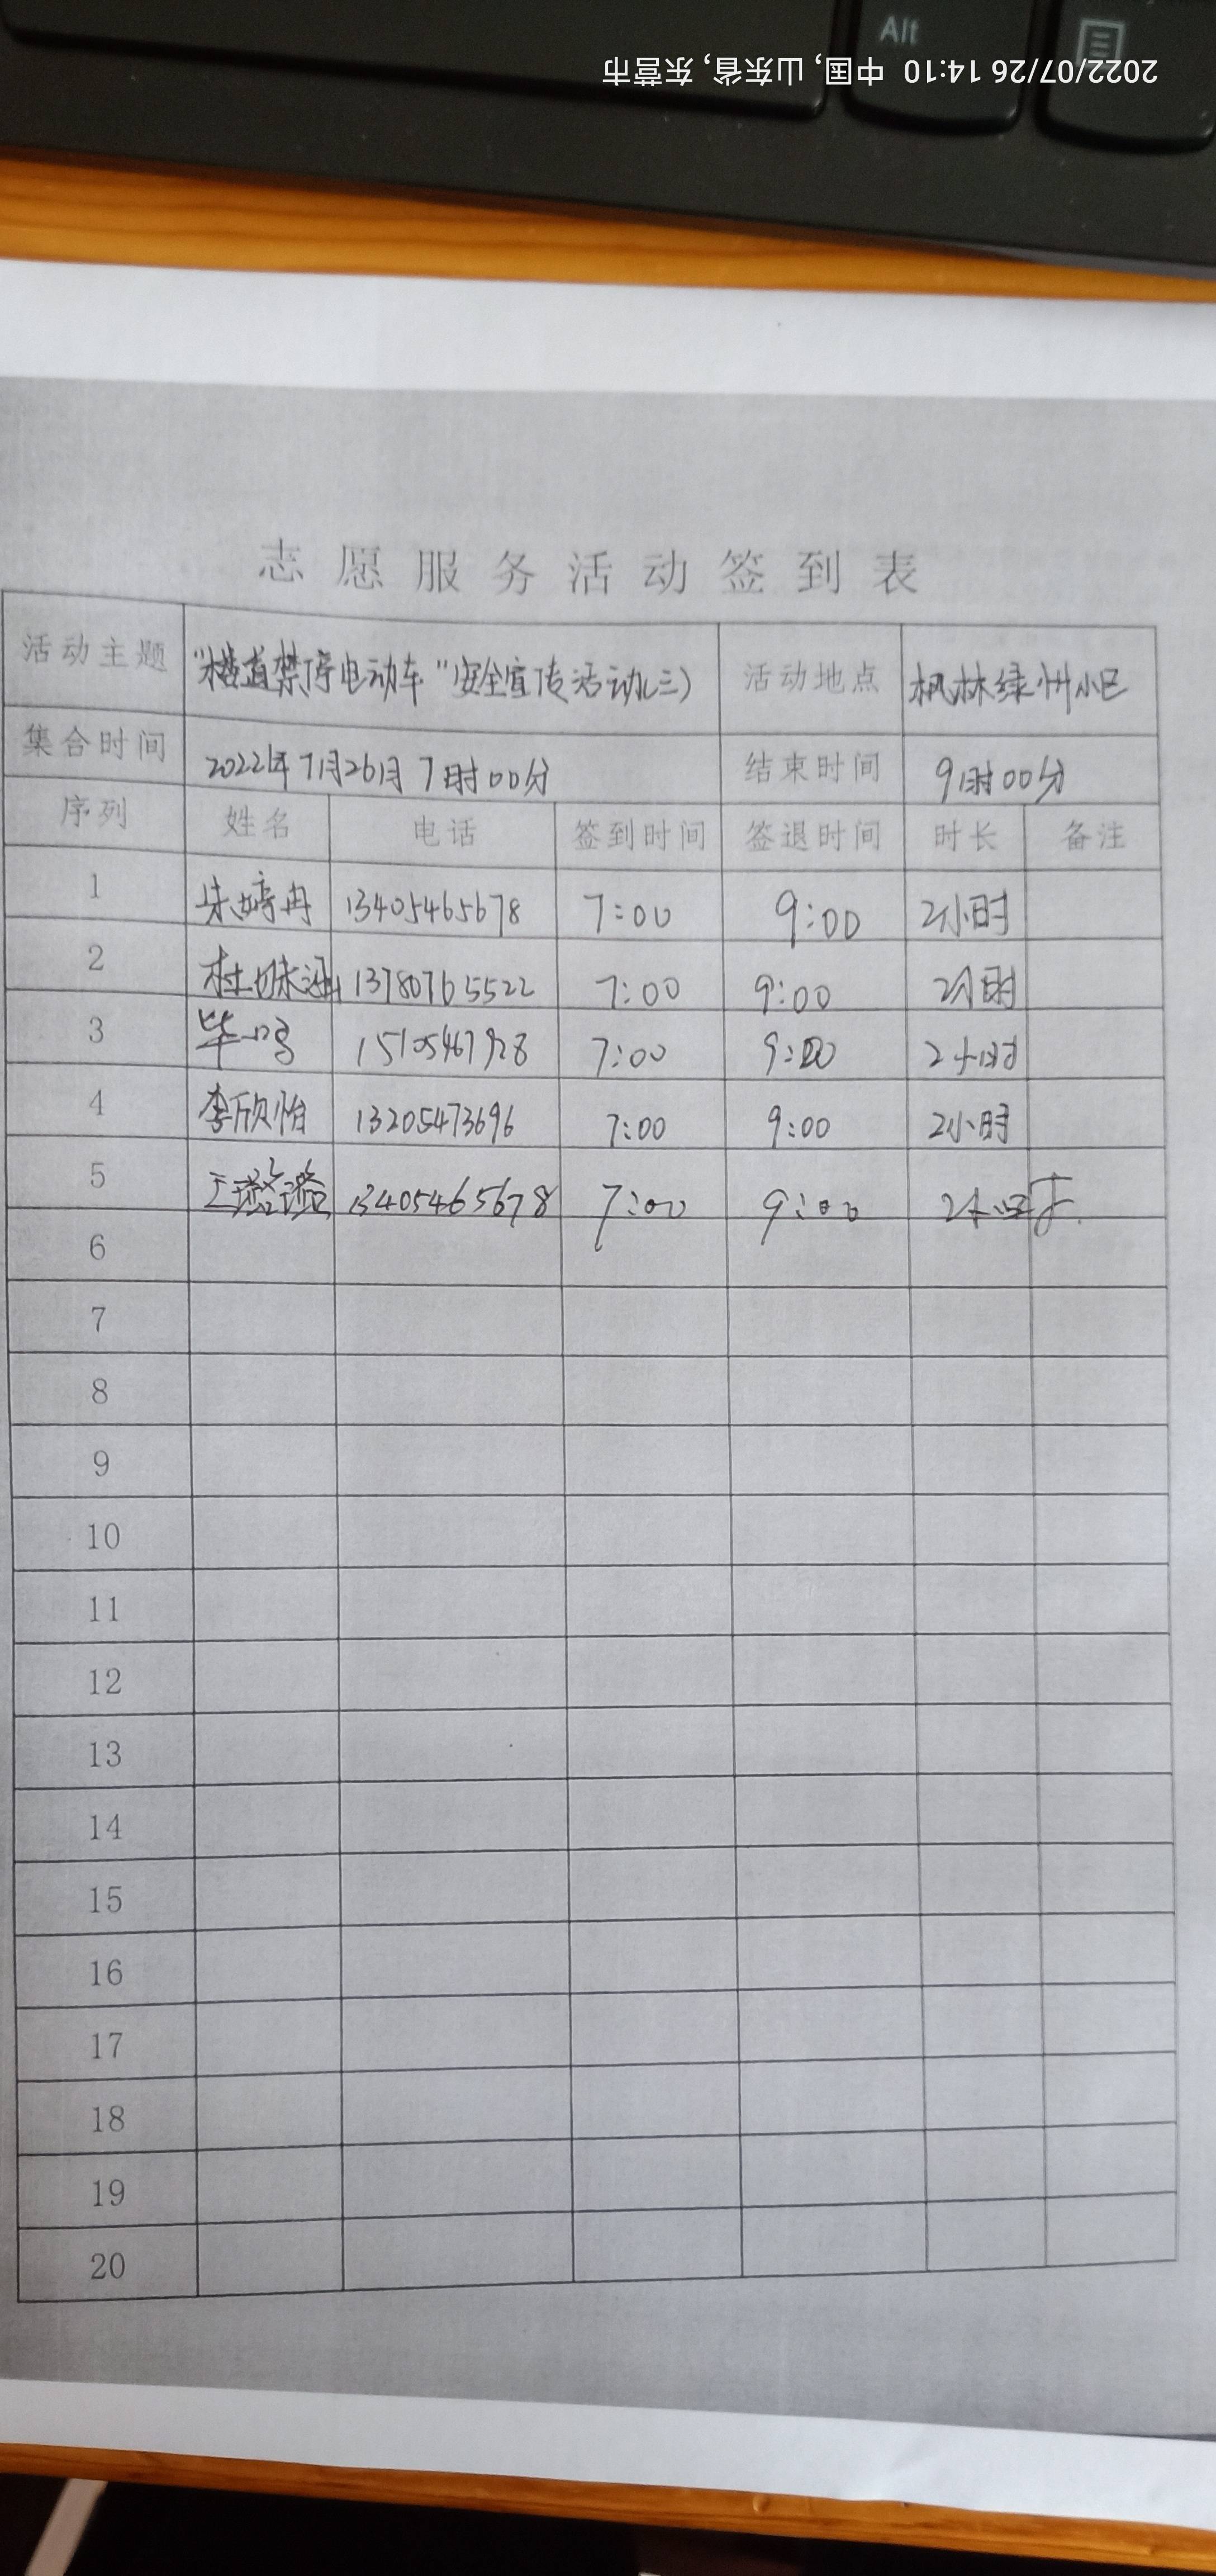 Alt
2022/07/26 14:10 中国, 山东省, 东营市
志愿服务活动签到表
活动主题 "楼道禁停电动车"安全宣传活动(三) 活动地点 枫林绿州小区
集合时间 2022年7月26日 7时00分 结束时间 9时00分
序列 姓名 电话 签到时间 签退时间 时长 备注
1 朱婷冉 13405465678 7:00 9:00 2小时
2 13780765522 7:00 9:00 2小时
3 毕一鸣 15105467928 7:00 9:00 2小时
4 李欣怡 13205473696 7:00 9:00 2小时
5 王璐璐 13405465678 7:00 9:00 2小时
6
7
8
9
10
11
12
13
14
15
16
17
18
19
20